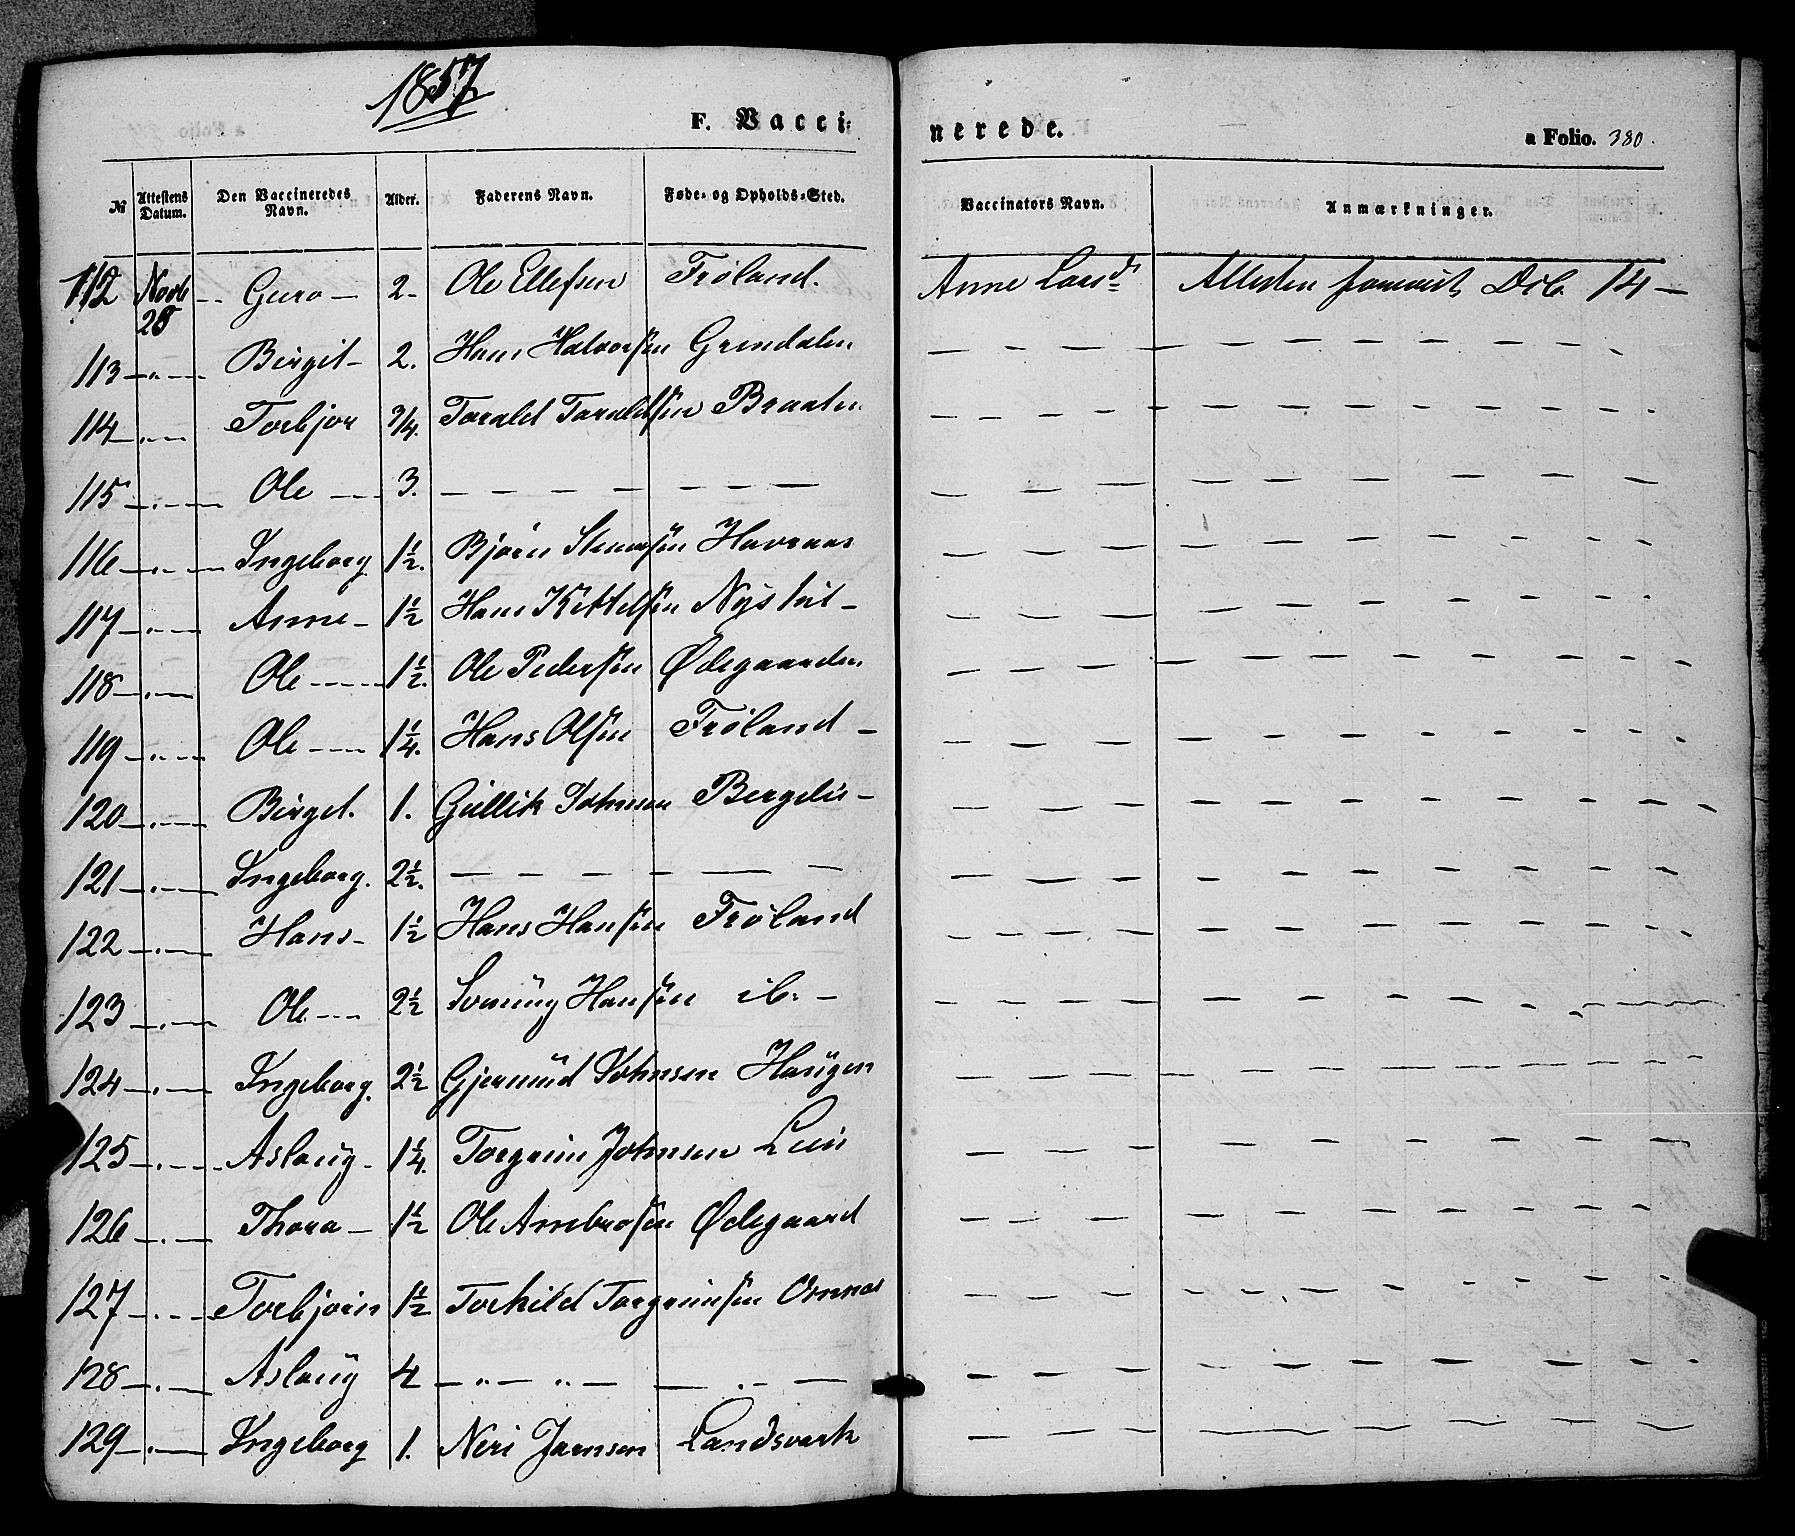 1857
F. Vacci-
nerede.
a Folio. 380.
№ Attestens Datum. Den Vaccineredes Navn. Alder. Faderens Navn. Føde- og Opholds-Sted. Vaccinators Navn. Anmærkninger.
112 Novb 28 -- Guro — 2. Ole Ellefsen Frøland. Anne Attesten Dcb. 14 —
113 — „ — Birgit — 2. Hans Halvorsen Grindalen — — — — — — — — —
114 — „ — Torbjør 3/4. Tarald Taraldsen Braaten — — — — — — — — —
115 — „ — Ole — 3. — — — — — — — — — — — — — — —
116 — „ — Ingeborg 1½. Bjørn Havraas — — — — — — — — —
117 — „ — Anne — 1½ Hans Kittelsen Nystul — — — — — — — — — —
118 — „ — Ole — 1½. Ole Pedersen Ødegaarden — — — — — — — — —
119 — „ — Ole — 1¼. Hans Olsen Frøland — — — — — — — — — —
120 — „ — Birget. 1. Gullik Johnsen — — — — — — — — — —
121 — „ — Ingeborg. 2½. — — — — — — — — — — — — — — —
122 — „ — Hans — 1½ Hans Hansen Frøland — — — — — — — — —
123 — „ — Ole — 2½ Hansen ib. — — — — — — — — — —
124 — „ — Ingeborg. 2½ Gjermund Johnsen Haugen — — — — — — — — —
125 — „ — Aslaug — 1¼. Torgrim Johnsen — — — — — — — — —
126 — „ — Thora — 1½ Ole Ambrosen Ødegaard — — — — — — — — —
127 — „ — Torbjørn 1½ Torkild Torgrimsen — — — — — — — — —
128 — „ — Aslaug 4 — „ — „ — — „ — — — — — — — — — —
129 — „ — Ingeborg 1. Neri Landsverk — — — — — — — — —